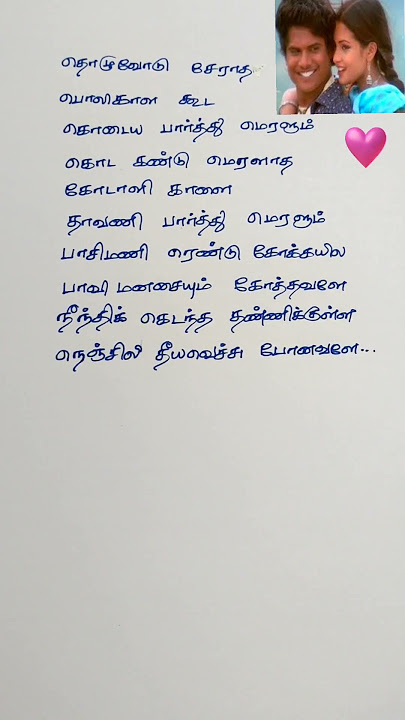 தொழுவோடு சேராத
பொலிகாள கூட
கொடைய பார்த்து மெரளும்
கொட கண்டு மெரளாத
கோடாளி காளை
தாவணி பார்த்து மெரளும்
பாசிமணி ரெண்டு கோக்கயில
பாவி மனசையும் கோத்தவளே
நீந்திக் கெடந்த தண்ணிக்குள்ள
நெஞ்சில தீயவெச்சு போனவளே...